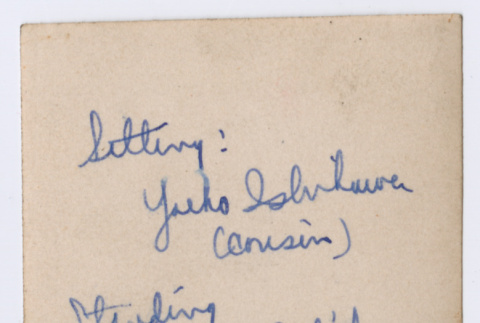 Sitting:
Yaeko Ishikawa
(cousin)
Standing